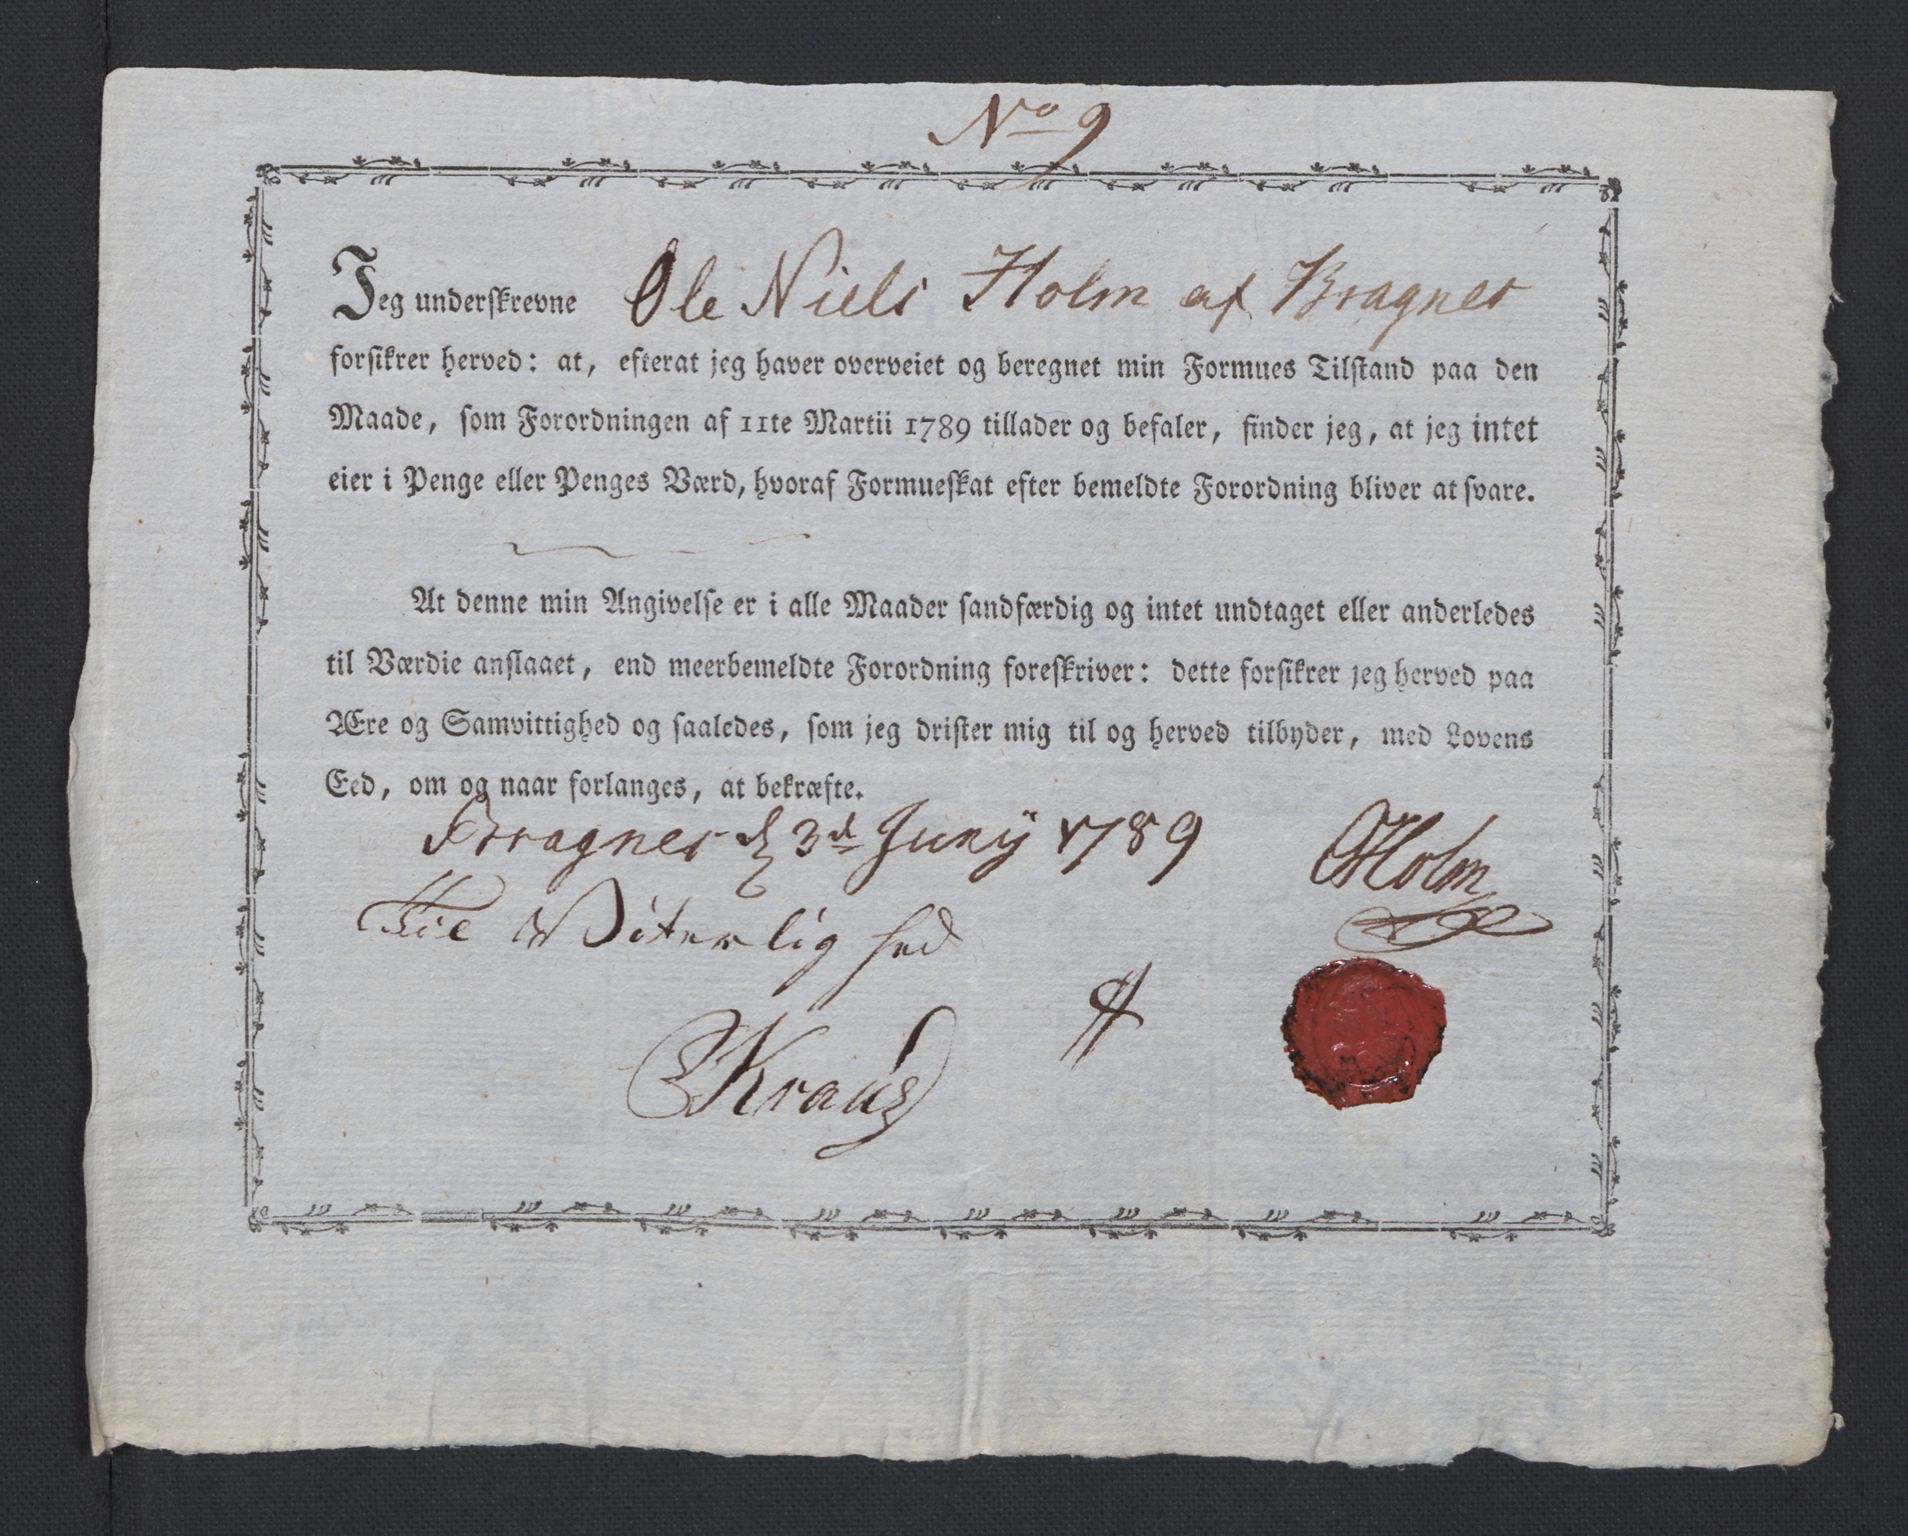 No 9
Jeg underskrevne Ole Niels Holm af Bragnes
forsikrer herved: at, efterat jeg haver overveiet og beregnet min Formues Tilstand paa den
Maade, som Forordningen af 11te Martii 1789 tillader og befaler, finder jeg, at jeg intet
eier i Penge eller Penges Værd, hvoraf Formueskat efter bemeldte Forordning bliver at svare.
At denne min Angivelse er i alle Maader sandfærdig og intet undtaget eller anderledes
til Værdie anslaaet, end meerbemeldte Forordning foreskriver: dette forsikrer jeg herved paa
Ære og Samvittighed og saaledes, som jeg drister mig til og herved tilbyder, med Lovens
Eed, om og naar forlanges, at bekræfte.
Bragnes d 3d Juny 1789
OHolm
Til Viterlighed
Kraus